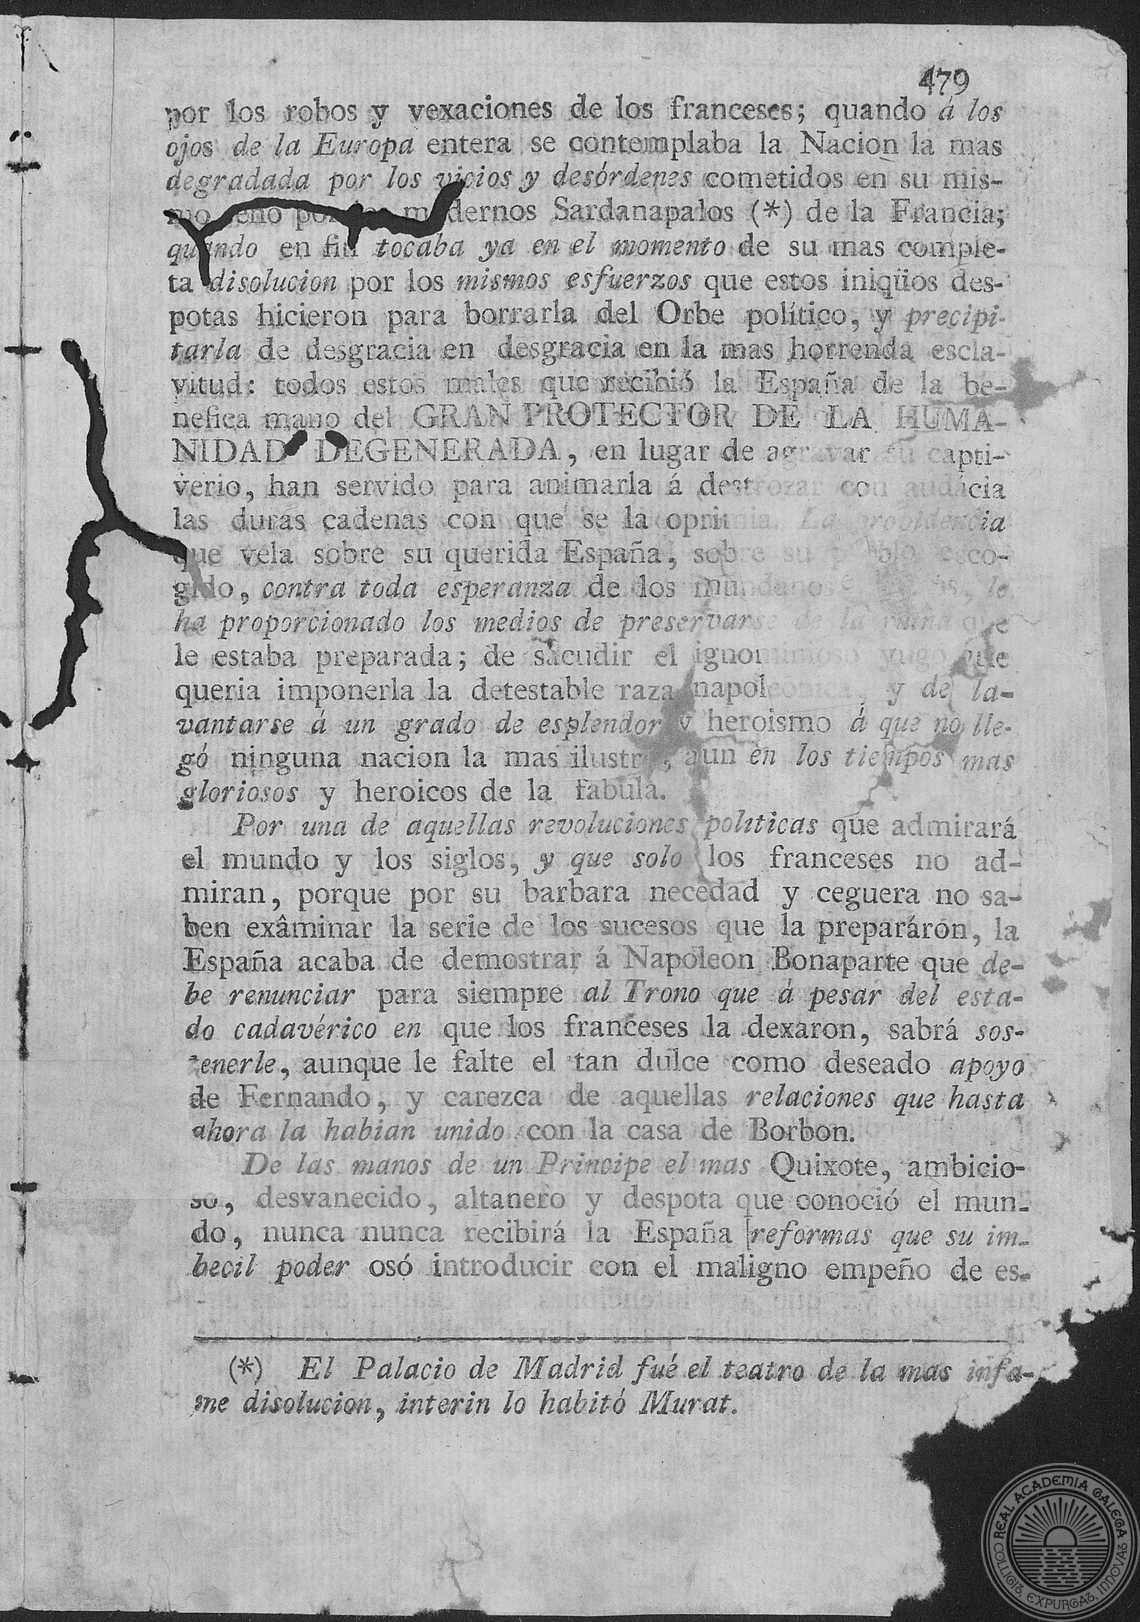 479
por los robos y vexaciones de los franceses; quando á los
ojos de la Europa entera se contemplaba la Nacion la mas
degradada por los vicios y desórdenes cometidos en su mis-
mo seno por los modernos Sardanapalos (*) de la Francia;
quando en fin tocaba ya en el momento de su mas comple-
ta disolucion por los mismos esfuerzos que estos iniqüos des-
potas hicieron para borrarla del Orbe político, y precipi-
tarla de desgracia en desgracia en la mas horrenda escla-
vitud: todos estos males que recibió la España de la be-
nefica mano del GRAN PROTECTOR DE LA HUMA-
NIDAD DEGENERADA, en lugar de agravar su capti-
verio, han servido para animarla á destrozar con audácia
las duras cadenas con que se la oprimia. La providencia
que vela sobre su querida España, sobre su pueblo esco-
gido, contra toda esperanza de los mundanos le
ha proporcionado los medios de preservarse de la ruina que
le estaba preparada; de sacudir el ignominioso yugo que
queria imponerla la detestable raza napoleonica, y de la-
vantarse á un grado de esplendor y heroismo á que no lle-
gó ninguna nacion la mas ilustre, aun en los tiempos mas
gloriosos y heroicos de la fabula.
Por una de aquellas revoluciones politicas que admirará
el mundo y los siglos, y que solo los franceses no ad-
miran, porque por su barbara necedad y ceguera no sa-
ben exâminar la serie de los sucesos que la preparáron, la
España acaba de demostrar á Napoleon Bonaparte que de-
be renunciar para siempre al Trono que á pesar del esta-
do cadavérico en que los franceses la dexaron, sabrá sos-
tenerle, aunque le falte el tan dulce como deseado apoyo
de Fernando, y carezca de aquellas relaciones que hasta
ahora la habian unido con la casa de Borbon.
De las manos de un Principe el mas Quixote, ambicio-
so, desvanecido, altanero y despota que conoció el mun-
do, nunca nunca recibirá la España [reformas que su im-
becil poder osó introducir con el maligno empeño de es-
(*) El Palacio de Madrid fué el teatro de la mas infa-
me disolucion, interin lo habitó Murat.
REAL ACADEMIA GALEGA
COLLIGIT, EXPURGAT, INNOVAT